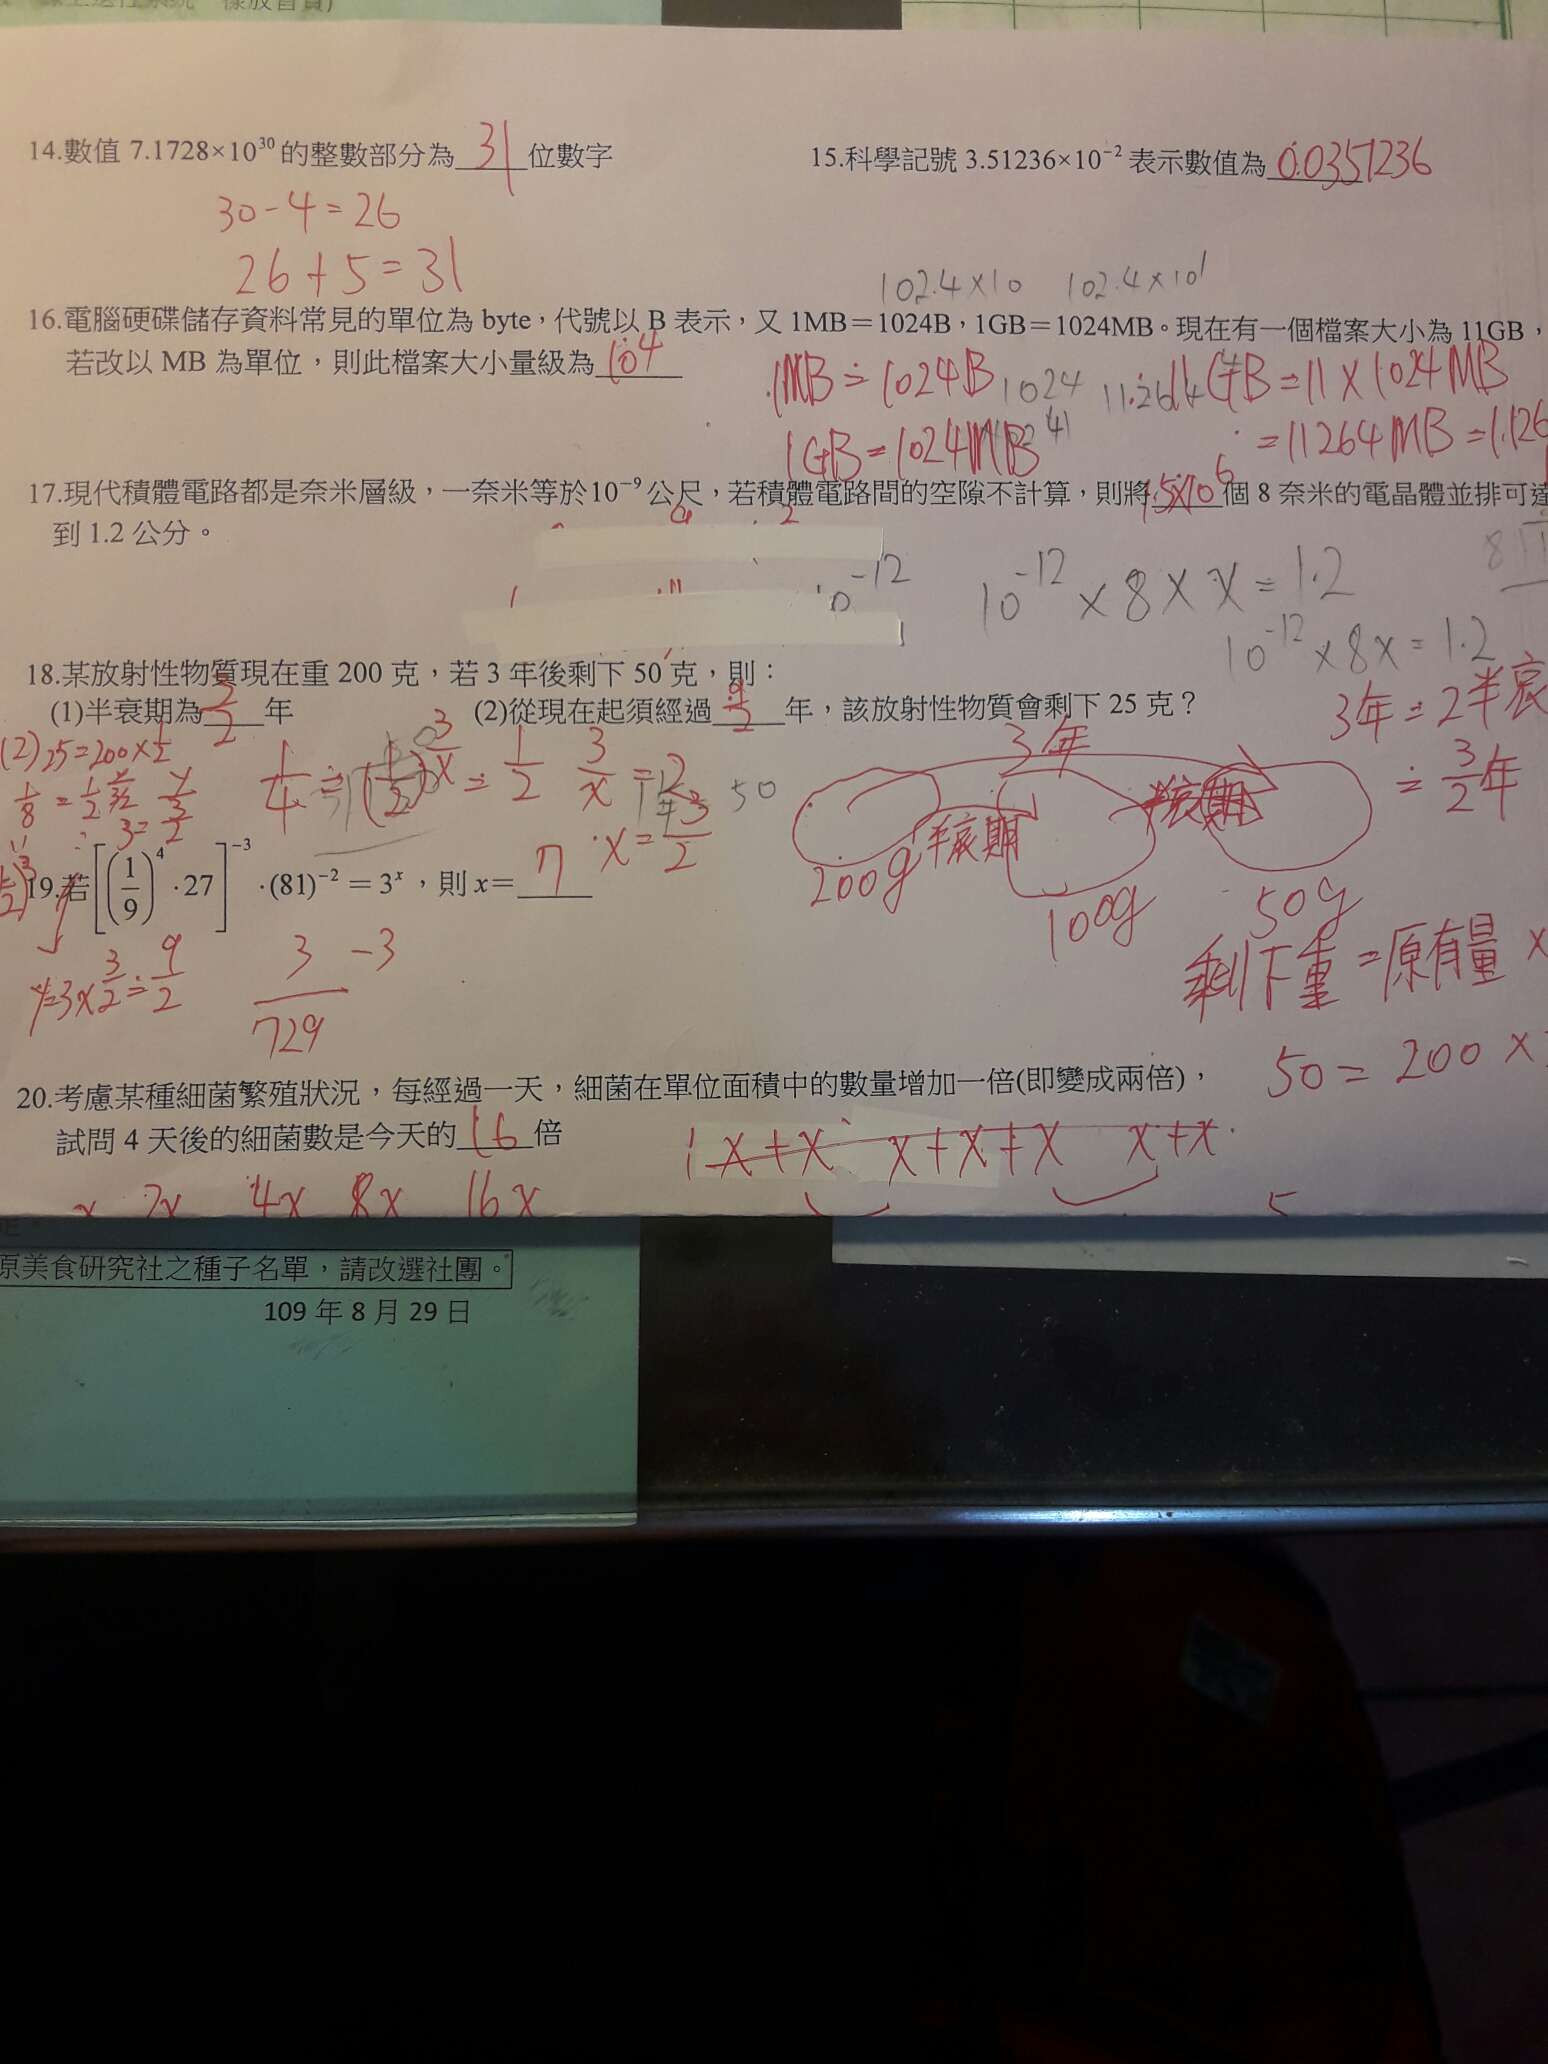 14.數值 7.1728×10³⁰ 的整數部分為 31 位數字
15.科學記號 3.51236×10⁻² 表示數值為 0.0351236
30-4=26
26+5=31
102.4×10 102.4×10¹
16.電腦硬碟儲存資料常見的單位為 byte,代號以 B 表示,又 1MB=1024B,1GB=1024MB。現在有一個檔案大小為 11GB,
若改以 MB 為單位,則此檔案大小量級為 10⁴
1MB=1024B 1024 11GB=11×1024MB
1GB=1024MB =11264MB=1.126
17.現代積體電路都是奈米層級,一奈米等於10⁻⁹公尺,若積體電路間的空隙不計算,則將 1.5×10⁶ 個 8 奈米的電晶體並排可達
到 1.2 公分。
10⁻¹² 10⁻¹²×8×x=1.2
10⁻¹²×8x=1.2
18.某放射性物質現在重 200 克,若 3 年後剩下 50 克,則:
(1)半衰期為 3/2 年 (2)從現在起須經過 9/2 年,該放射性物質會剩下 25 克?
3年=2半衰
=3/2年
3年
50
x=3/2
半衰期 半衰期
200g 100g 50g
19.若[(1/9)⁴·27]⁻³·(81)⁻²=3ˣ,則 x= 7
y=3×3/2=9/2
3/729 -3
剩下重=原有量×
50=200×
20.考慮某種細菌繁殖狀況,每經過一天,細菌在單位面積中的數量增加一倍(即變成兩倍),
試問 4 天後的細菌數是今天的 16 倍
x+x x+x+x x+x
x 2x 4x 8x 16x
原美食研究社之種子名單,請改選社團。
109 年 8 月 29 日